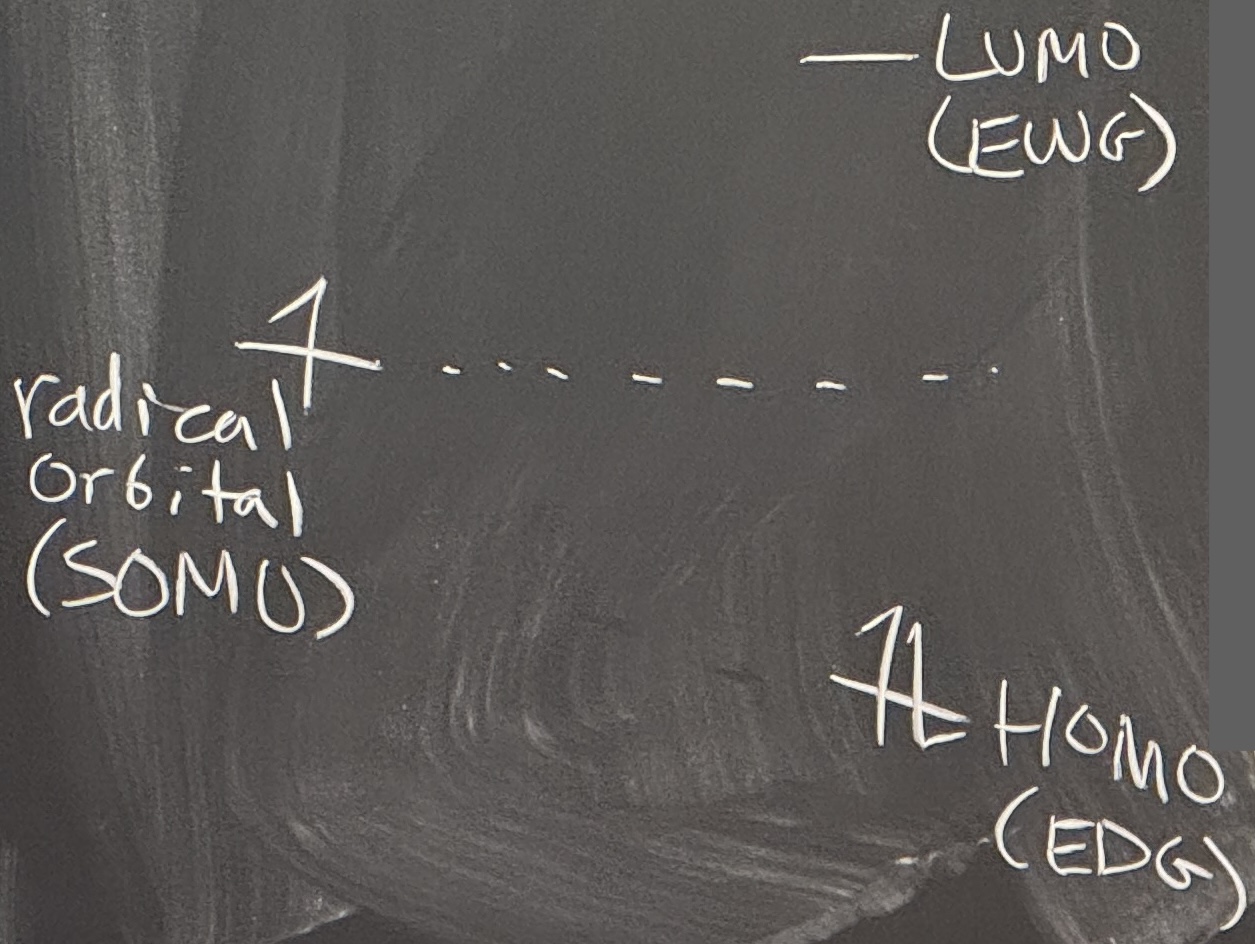 LUMO
(EWG)
radical
orbital
(SOMO)
HOMO
(EDG)